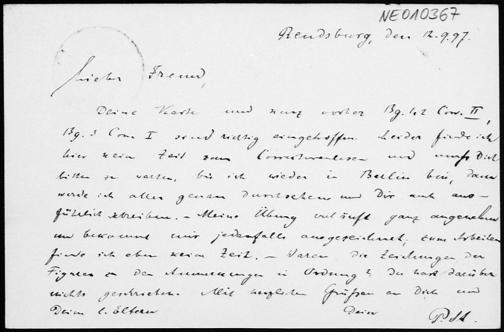 NE010367
Rendsburg, den 12.9.97.
Lieber Freund,
Deine Karte und kurz vorher Bg. 1.2 Corr. II,
Bg. 3 Corr. I sind richtig eingetroffen. Leider finde ich
hier kein Zeit zum Correcturlesen und muß Dich
bitten zu warten, bis ich wieder in Berlin bin, dann
werde ich alles genau durchsehen und Dir auch aus-
führlich schreiben. – Meine Übung verläuft ganz angenehm
und bekommt mir jedenfalls ausgezeichnet, zum Arbeiten
finde ich aber keine Zeit. – Waren die Zeichnungen der
Figuren zu den Anmerkungen in Ordnung? Du hast darüber
nichts geschrieben. Mit herzlichen Grüßen an Dich und
Deine l. Eltern Dein P. St.